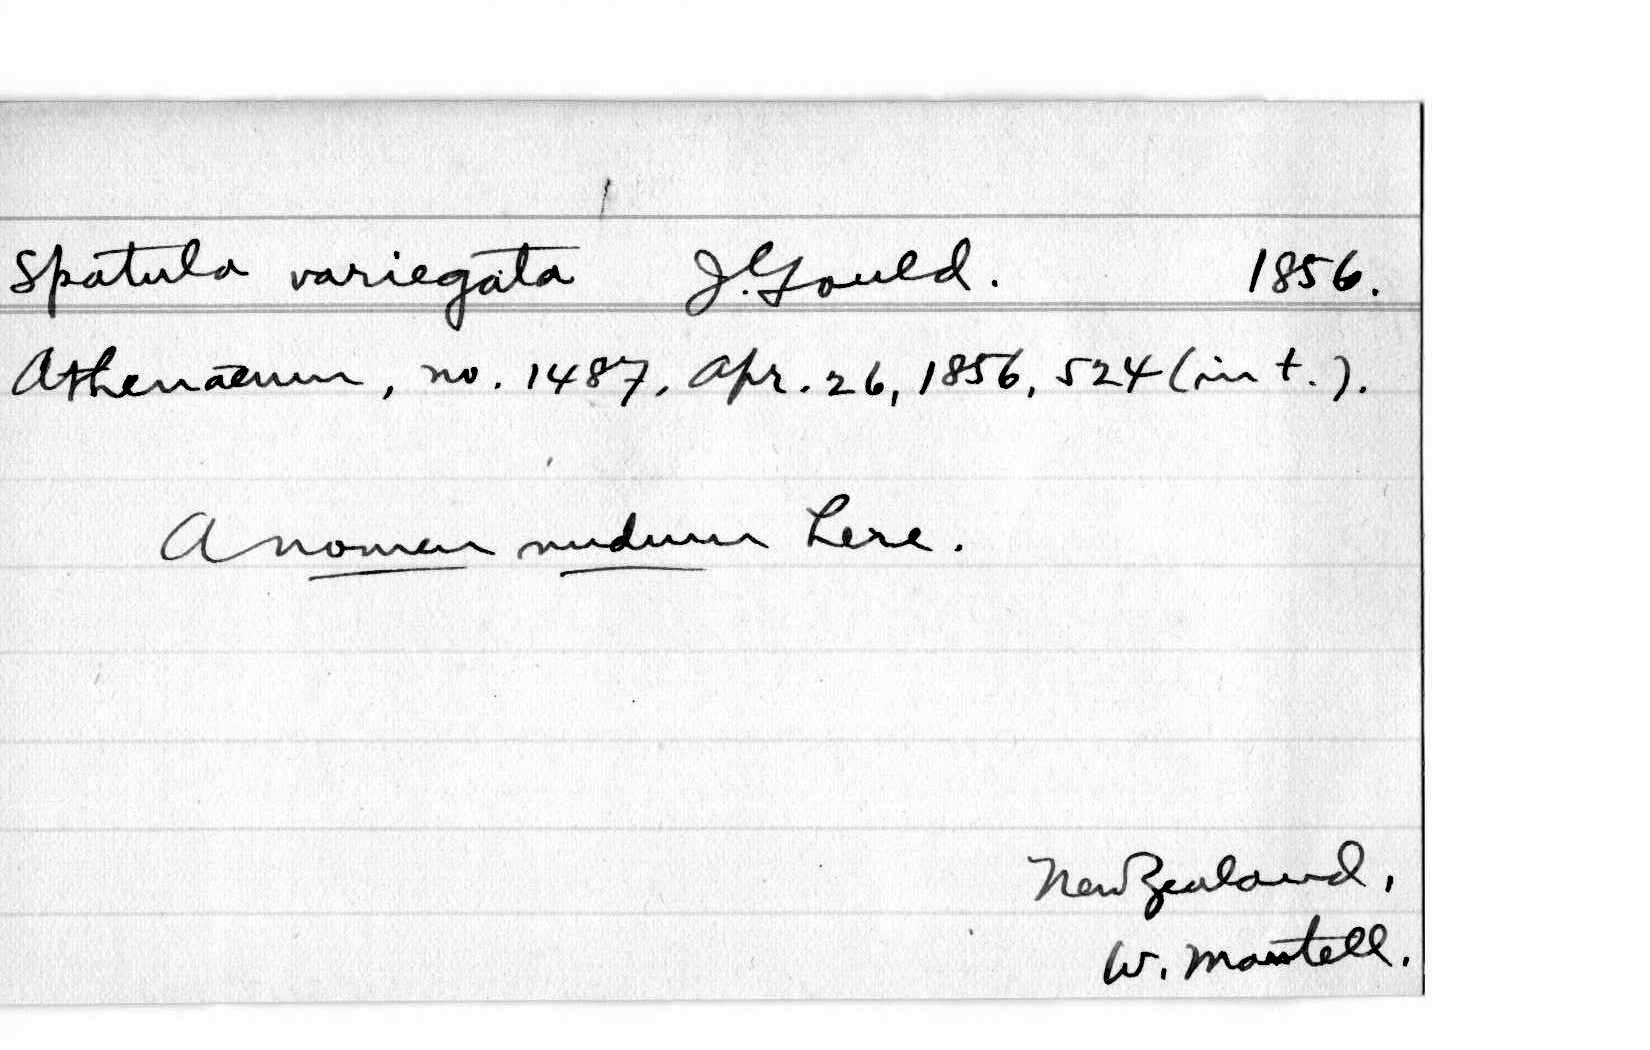 Spatula variegata J. Gould. 1856.
Athenaeum, no. 1487, Apr. 26, 1856, 524 (in t.).
A nomen nudum here.
New Zealand,
W. Mantell.